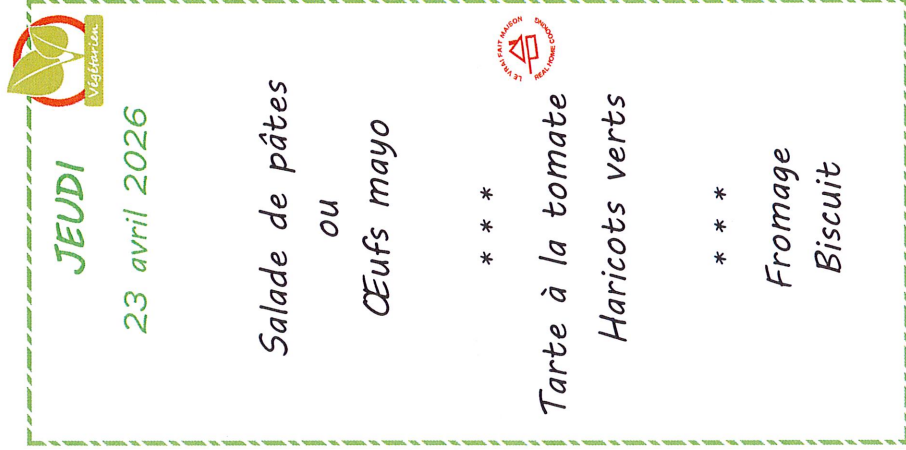 JEUDI
Végétarien
23 avril 2026
Salade de pâtes
ou
Œufs mayo
* * *
LE VRAI FAIT MAISON
REAL HOME COOKING
Tarte à la tomate
Haricots verts
* * *
Fromage
Biscuit